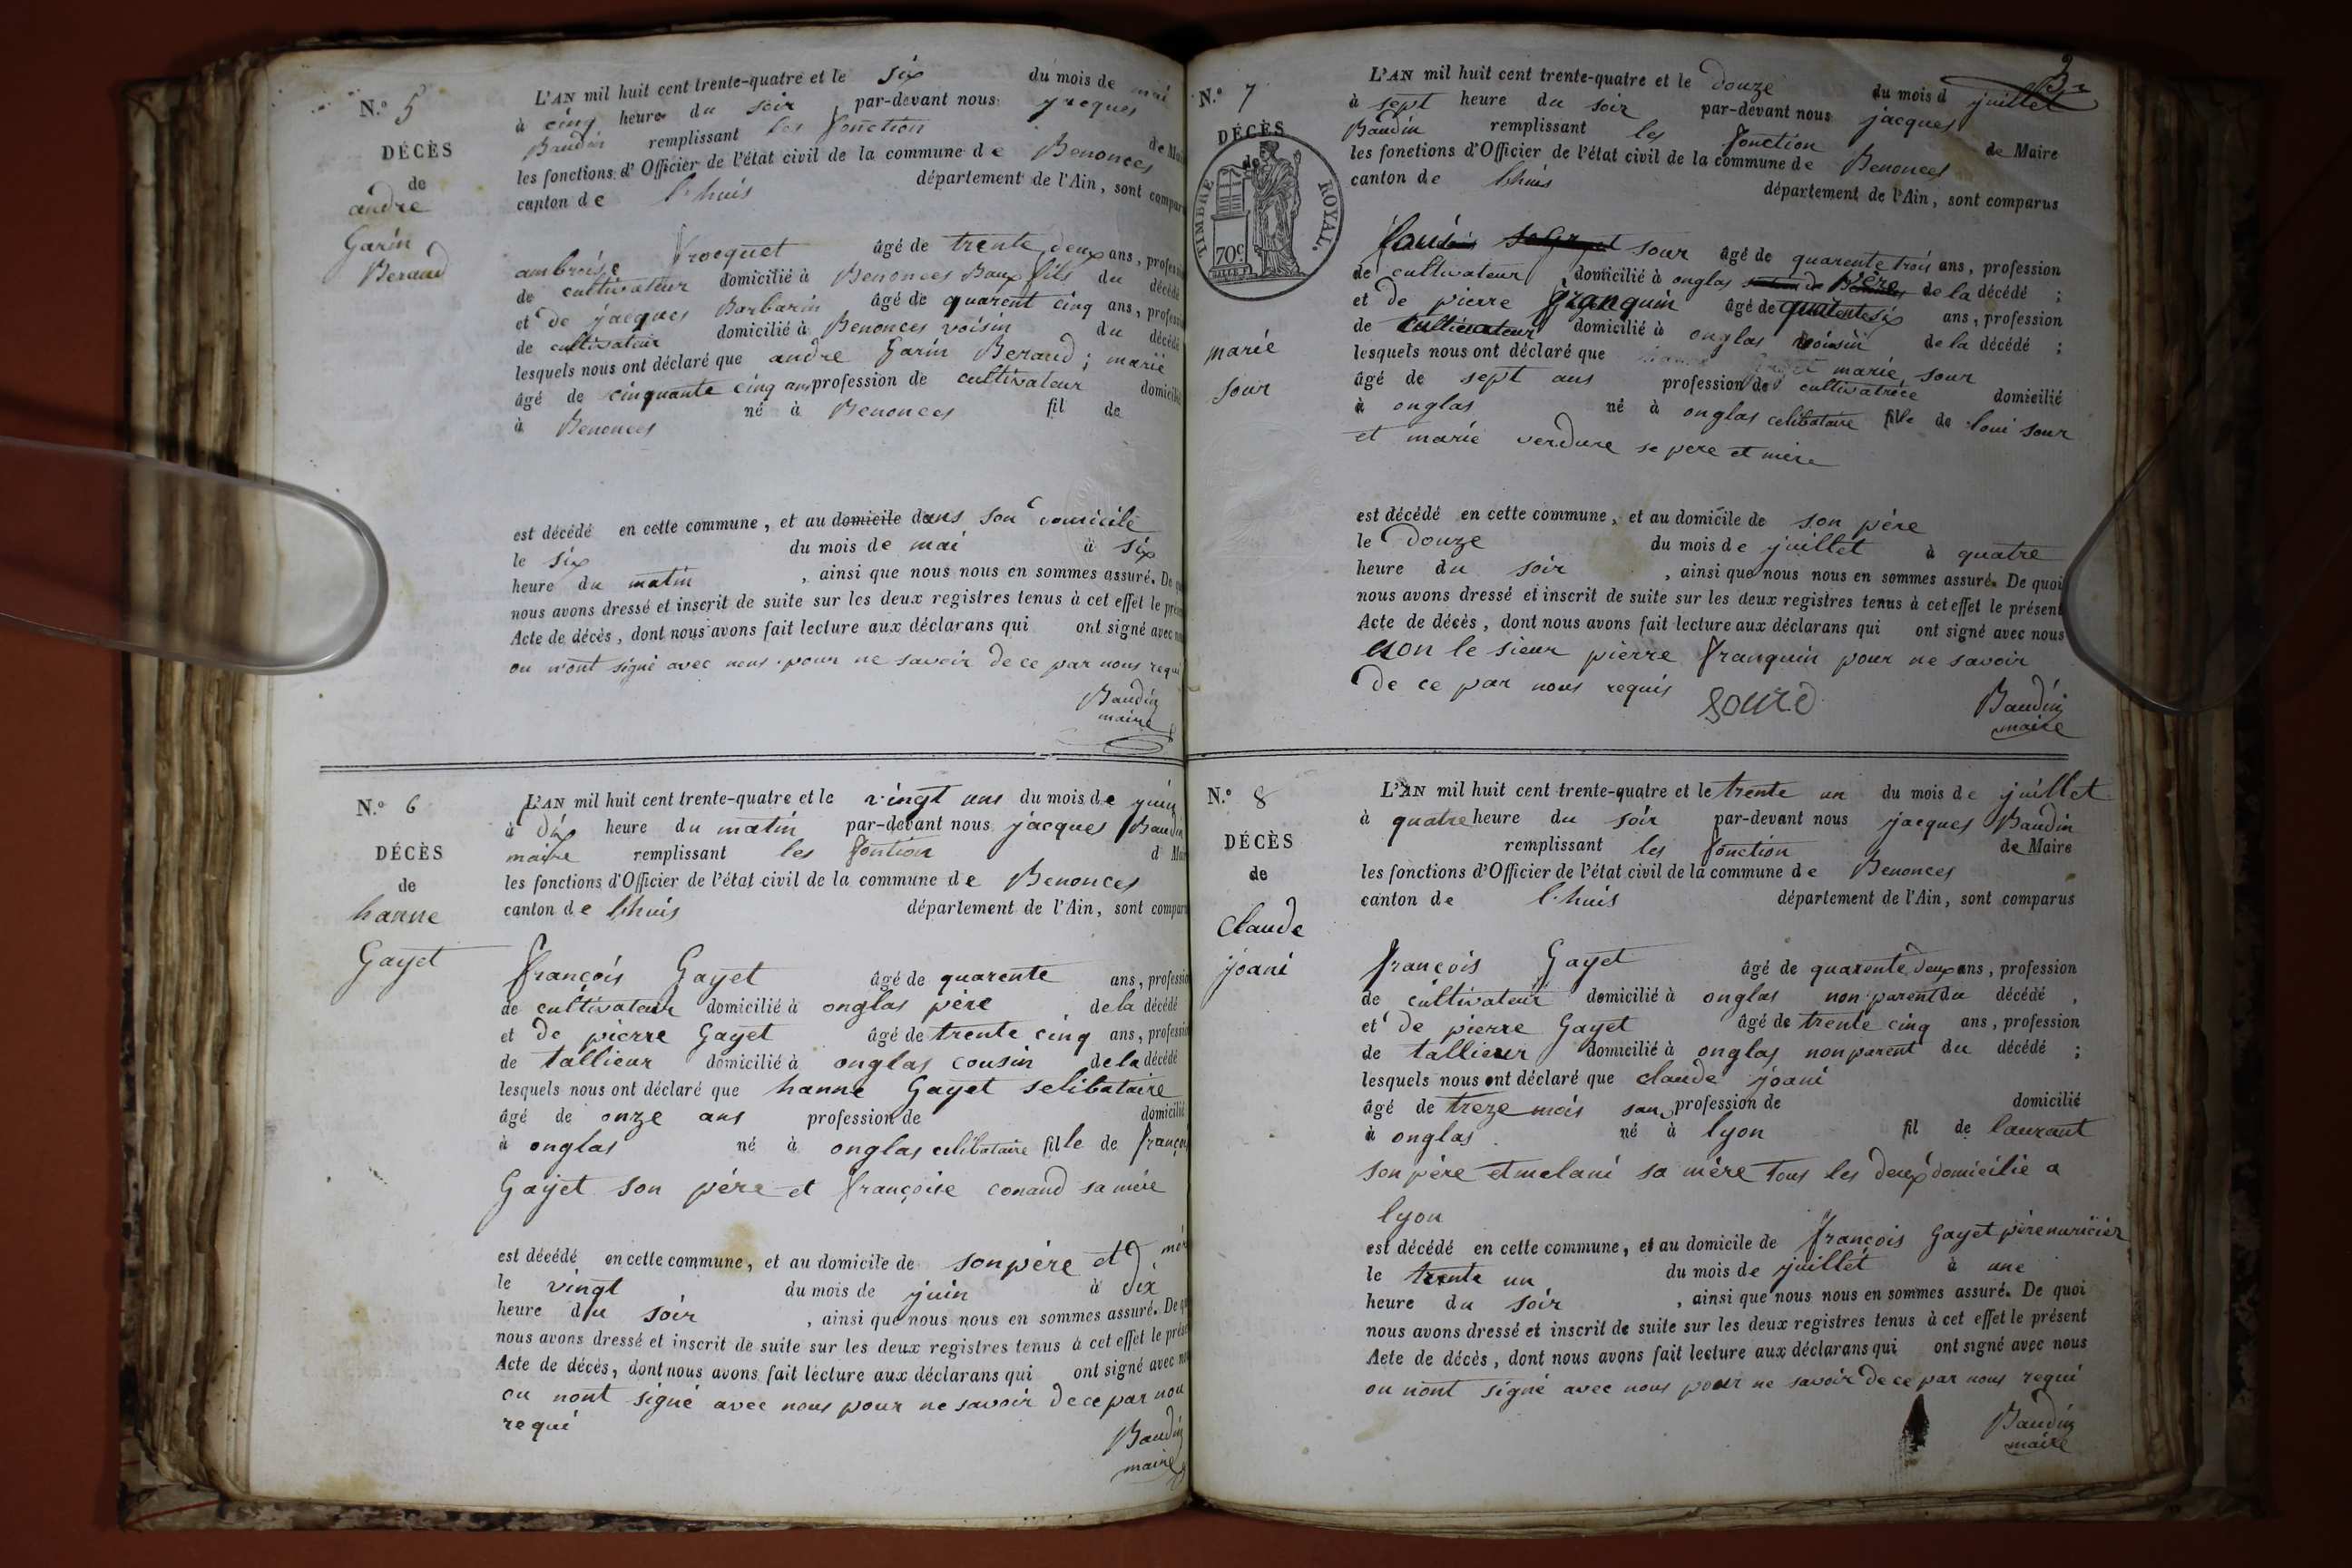 N.° 5
DÉCÈS
de
andre
Garin
Beraud
L'AN mil huit cent trente-quatre et le six du mois de mai
à cinq heure du soir par-devant nous jacques
Baudin remplissant les fonction de Mai
les fonctions d'Officier de l'état civil de la commune de Benonces
canton de l'huis département de l'Ain, sont compar
ambroise Frocquet âgé de trente deux ans, profess
de cultivateur domicilié à Benonces Baux fils du décédé
et de jacques Barbarin âgé de quarent cinq ans, profess
de cultivateur domicilié à Benonces voisin du décédé
lesquels nous ont déclaré que andre Garin Beraud ; marié
âgé de cinquante cinq ans profession de cultivateur domicili
à Benonces né à Benonces fil de
est décédé en cette commune, et au domicile dans son domicile
le six du mois de mai à six
heure du matin , ainsi que nous nous en sommes assuré. De q
nous avons dressé et inscrit de suite sur les deux registres tenus à cet effet le pré
Acte de décès, dont nous avons fait lecture aux déclarans qui ont signé avec n
ou n'ont signé avec nous pour ne savoir de ce par nous requi
Baudin
maire
N.° 6
DÉCÈS
de
hanne
Gayet
L'AN mil huit cent trente-quatre et le vingt uns du mois de juin
à dix heure du matin par-devant nous jacques Baudin
maire remplissant les fontion d Mai
les fonctions d'Officier de l'état civil de la commune de Benonces
canton de lhuis département de l'Ain, sont compar
françois Gayet âgé de quarente ans, professio
de cultivateur domicilié à onglas père de la décédé
et de pierre Gayet âgé de trente cinq ans, professio
de tallieur domicilié à onglas cousin de la décédé
lesquels nous ont déclaré que hanne Gayet selibataire
âgé de onze ans profession de domicilié
à onglas né à onglas celibataire fille de françois
Gayet son père et françoise conand sa mère
est décédé en cette commune, et au domicile de son père et mère
le vingt du mois de juin à dix
heure du soir , ainsi que nous nous en sommes assuré. De q
nous avons dressé et inscrit de suite sur les deux registres tenus à cet effet le prése
Acte de décès, dont nous avons fait lecture aux déclarans qui ont signé avec no
ou nont signé avec nous pour ne savoir de ce par nou
requi
Baudin
maire
3
N.° 7
DÉCÈS
de
TIMBRE ROYAL.
70c
marié
sour
L'AN mil huit cent trente-quatre et le douze du mois d juillet
à sept heure du soir par-devant nous jacques
Baudin remplissant les fonction de Maire
les fonctions d'Officier de l'état civil de la commune de Benonces
canton de lhuis département de l'Ain, sont comparus
sour âgé de quarente trois ans, profession
de cultivateur domicilié à onglas père de la décédé ;
et de pierre franquin âgé de quarente six ans, profession
de cultivateur domicilié à onglas voisin de la décédé ;
lesquels nous ont déclaré que marié sour
âgé de sept ans profession de cultivatrice domicilié
à onglas né à onglas celibataire fille de loui sour
et marié verdure se pere et mère
est décédé en cette commune, et au domicile de son père
le douze du mois de juillet à quatre
heure du soir , ainsi que nous nous en sommes assuré. De quoi
nous avons dressé et inscrit de suite sur les deux registres tenus à cet effet le présent
Acte de décès, dont nous avons fait lecture aux déclarans qui ont signé avec nous
non le sieur pierre franquin pour ne savoir
de ce par nous requis
Baudin
maire
N.° 8
DÉCÈS
de
Claude
joani
L'AN mil huit cent trente-quatre et le trente un du mois de juillet
à quatre heure du soir par-devant nous jacques Baudin
remplissant les fonction de Maire
les fonctions d'Officier de l'état civil de la commune de Benonces
canton de l'huis département de l'Ain, sont comparus
françois Gayet âgé de quarente deux ans, profession
de cultivateur domicilié à onglas non parent du décédé ,
et de pierre Gayet âgé de trente cinq ans, profession
de tallieur domicilié à onglas non parent du décédé ;
lesquels nous ont déclaré que claude joani
âgé de treze mois sans profession de domicilié
à onglas né à lyon fil de laurant
son père et melani sa mère tous les deux domicilié a
lyon
est décédé en cette commune, et au domicile de françois Gayet père nuricier
le trente un du mois de juillet à une
heure du soir , ainsi que nous nous en sommes assuré. De quoi
nous avons dressé et inscrit de suite sur les deux registres tenus à cet effet le présent
Acte de décès, dont nous avons fait lecture aux déclarans qui ont signé avec nous
ou nont signé avec nous pour ne savoir de ce par nous requi
Baudin
maire